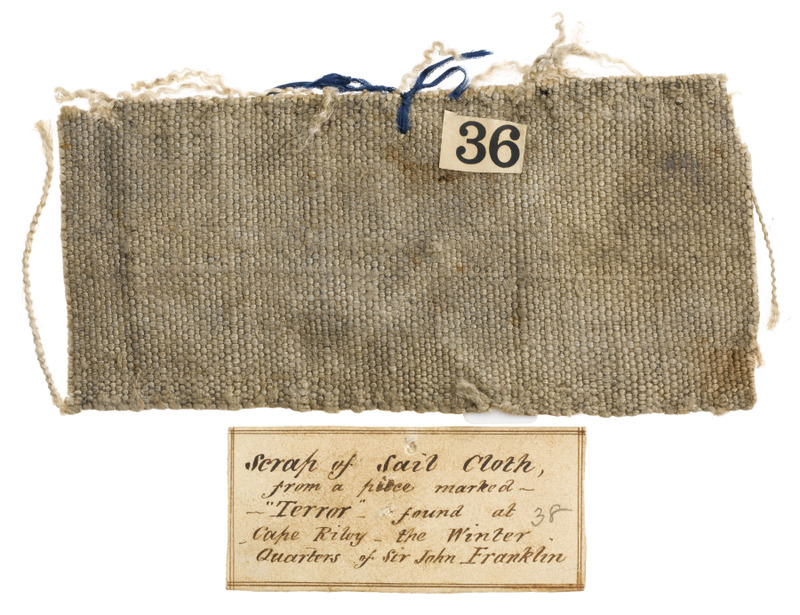 36
Scrap of Sail Cloth,
from a piece marked -
- "Terror" - found at 38
Cape Rily - the Winter
Quarters of Sir John Franklin